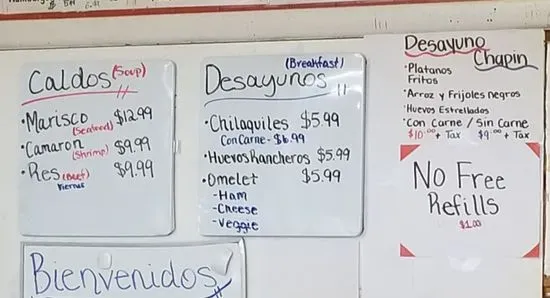 Caldos (Soup)
Marisco $12.99
(Seafood)
Camaron $9.99
(Shrimp)
Res (Beef) $9.99
Viernes
(Breakfast)
Desayunos
Chilaquiles $5.99
Con Carne - $6.99
Huevos Rancheros $5.99
Omelet $5.99
- Ham
- Cheese
- Veggie
Desayuno
Chapin
Platanos
Fritos
Arroz y Frijoles negros
Huevos Estrellados
Con Carne / Sin Carne
$10.00 + Tax $9.00 + Tax
No Free
Refills
$1.00
Bienvenidos